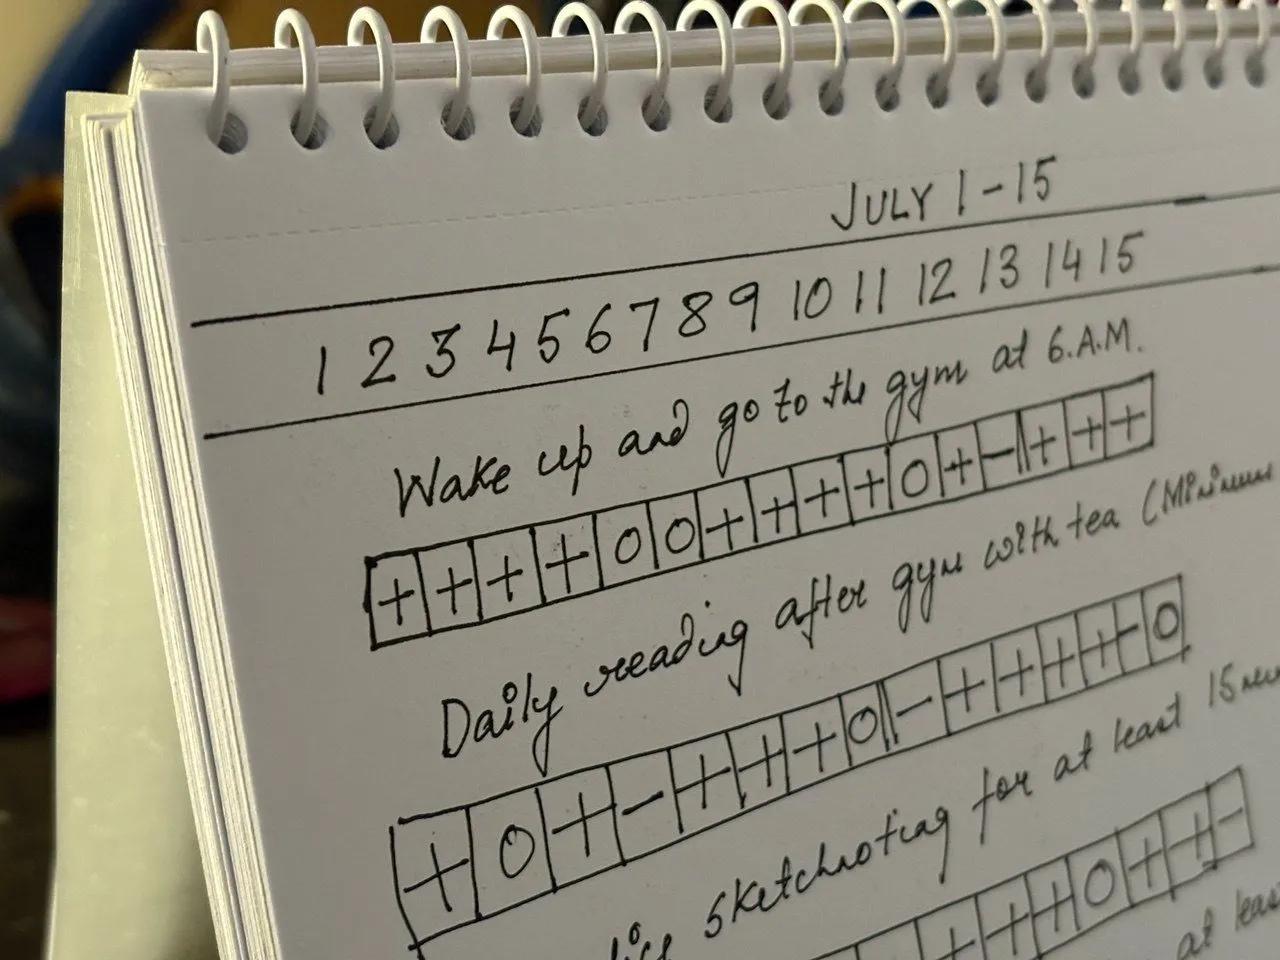 JULY 1-15
1 2 3 4 5 6 7 8 9 10 11 12 13 14 15
Wake up and go to the gym at 6.A.M.
+ + + + O O + + + + O + - + + +
Daily reading after gym with tea (Minimum
+ O + - + + + O - + + + + - O
sketchnoting for at least 15
+ + + O + + -
at leas